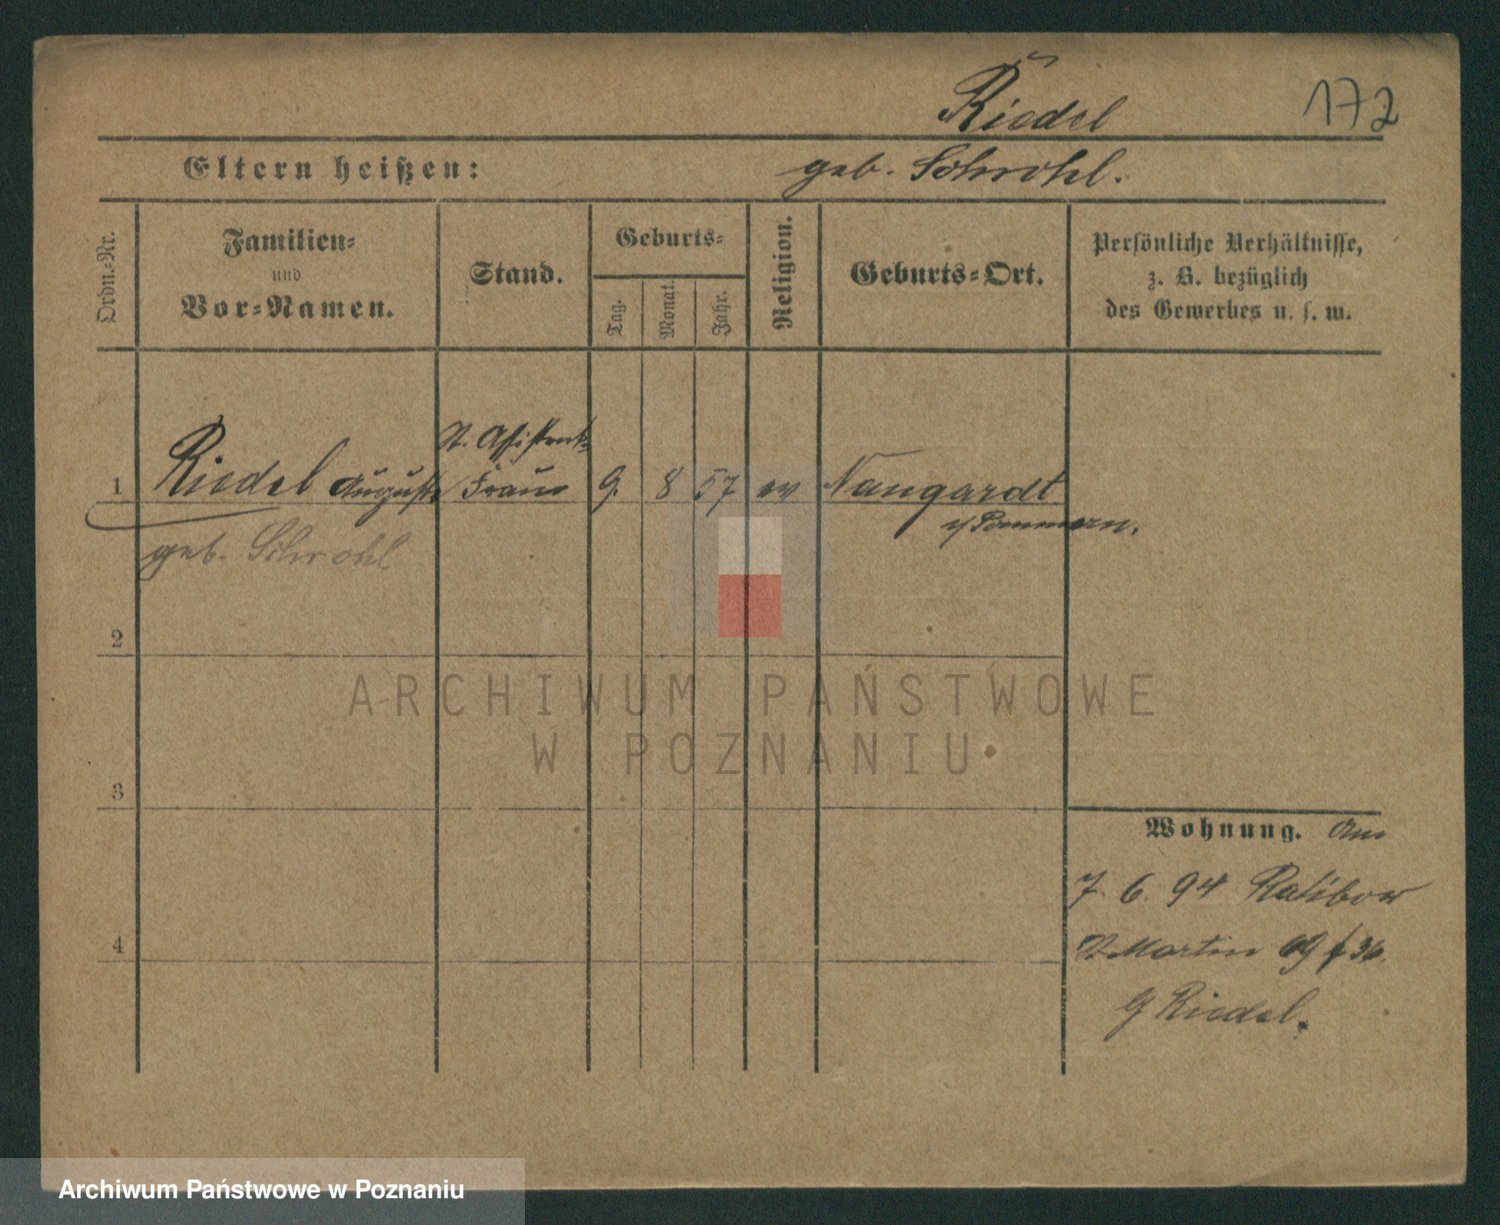 Riedel 172
Eltern heißen: geb. Schrohl.
Ordn.-Nr.
Familien-
und
Vor-Namen.
Stand.
Geburts-
Tag.
Monat.
Jahr.
Religion.
Geburts-Ort.
Persönliche Verhältnisse,
z. B. bezüglich
des Gewerbes u. s. w.
St. Assistent-
1 Riedel Auguste Frau 9. 8 57 ev Naugardt
geb. Schrohl
Pommern.
2
3
4
Wohnung. Am
7. 6. 94 Ratibor
St Martin 69
G Riedel.
ARCHIWUM PAŃSTWOWE
W POZNANIU
Archiwum Państwowe w Poznaniu